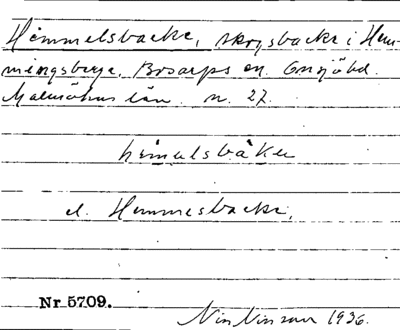 Himmelsbacke, skogsbacke i Hem-
mingsberga. Bosarps sn. Onsjö hd.
Malmöhus län. n. 27.
himelsbáken
el. Hemmesbacke,
Nr 5709.
1936.